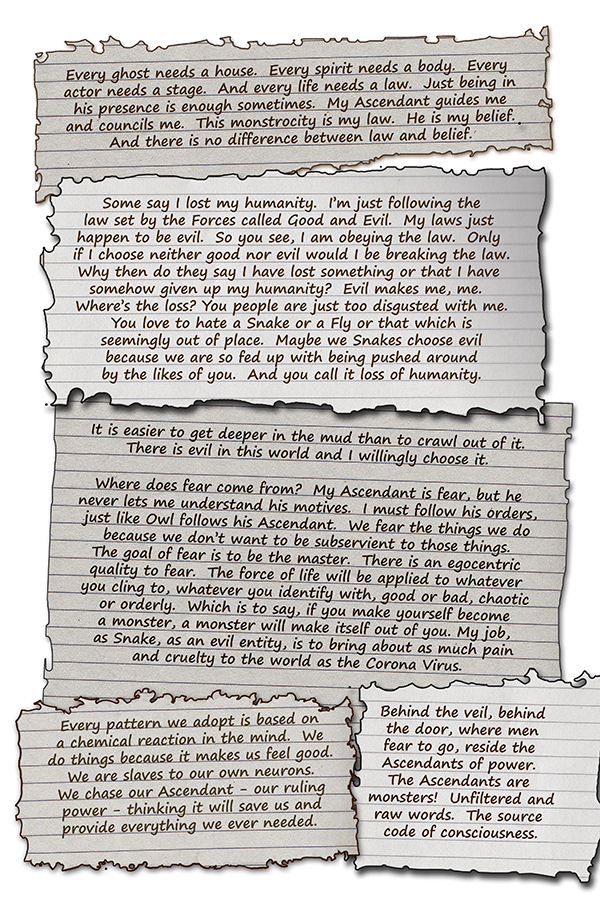 Every ghost needs a house. Every spirit needs a body. Every
actor needs a stage. And every life needs a law. Just being in
his presence is enough sometimes. My Ascendant guides me
and councils me. This monstrocity is my law. He is my belief.
And there is no difference between law and belief.
Some say I lost my humanity. I'm just following the
law set by the Forces called Good and Evil. My laws just
happen to be evil. So you see, I am obeying the law. Only
if I choose neither good nor evil would I be breaking the law.
Why then do they say I have lost something or that I have
somehow given up my humanity? Evil makes me, me.
Where's the loss? You people are just too disgusted with me.
You love to hate a Snake or a Fly or that which is
seemingly out of place. Maybe we Snakes choose evil
because we are so fed up with being pushed around
by the likes of you. And you call it loss of humanity.
It is easier to get deeper in the mud than to crawl out of it.
There is evil in this world and I willingly choose it.
Where does fear come from? My Ascendant is fear, but he
never lets me understand his motives. I must follow his orders,
just like Owl follows his Ascendant. We fear the things we do
because we don't want to be subservient to those things.
The goal of fear is to be the master. There is an egocentric
quality to fear. The force of life will be applied to whatever
you cling to, whatever you identify with, good or bad, chaotic
or orderly. Which is to say, if you make yourself become
a monster, a monster will make itself out of you. My job,
as Snake, as an evil entity, is to bring about as much pain
and cruelty to the world as the Corona Virus.
Every pattern we adopt is based on
a chemical reaction in the mind. We
do things because it makes us feel good.
We are slaves to our own neurons.
We chase our Ascendant - our ruling
power - thinking it will save us and
provide everything we ever needed.
Behind the veil, behind
the door, where men
fear to go, reside the
Ascendants of power.
The Ascendants are
monsters! Unfiltered and
raw words. The source
code of consciousness.